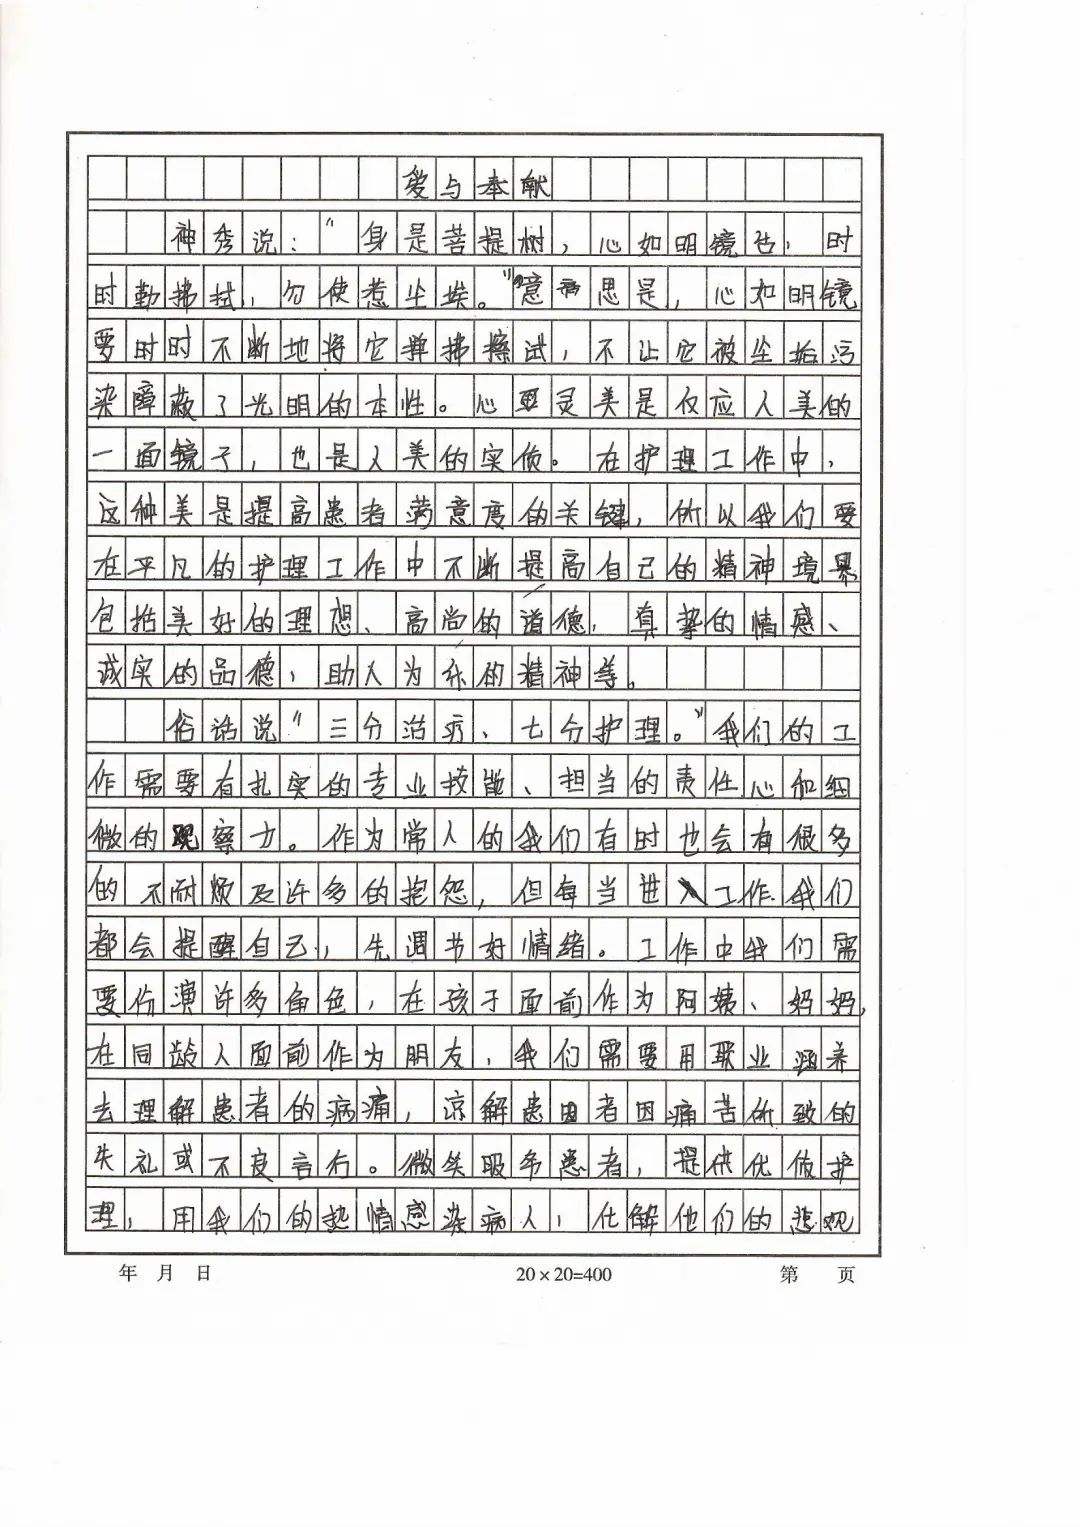 爱与奉献
神秀说："身是菩提树，心如明镜台，时
时勤拂拭，勿使惹尘埃。"意思是，心如明镜
要时时不断地将它掸拂擦试，不让它被尘垢污
染障蔽了光明的本性。心灵美是反应人美的
一面镜子，也是人美的实质。在护理工作中，
这种美是提高患者满意度的关键，所以我们要
在平凡的护理工作中不断提高自己的精神境界
包括美好的理想、高尚的道德，真挚的情感、
诚实的品德，助人为乐的精神等。
俗话说"三分治疗、七分护理。"我们的工
作需要有扎实的专业技能、担当的责任心和细
微的观察力。作为常人的我们有时也会有很多
的不耐烦及许多的抱怨，但每当进入工作我们
都会提醒自己，先调节好情绪。工作中我们需
要扮演许多角色，在孩子面前作为阿姨、妈妈，
在同龄人面前作为朋友，我们需要用职业涵养
去理解患者的病痛，谅解患者因痛苦所致的
失礼或不良言行。微笑服务患者，提供优质护
理，用我们的热情感染病人，化解他们的悲观
年 月 日 20×20=400 第 页